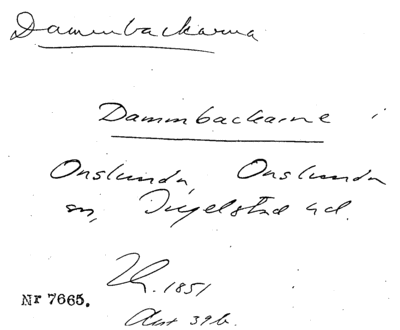 Dammbackarna
Dammbackarne i
Onslunda, Onslunda
sn, Ingelstad hd.
1851
Nr 7665.
Akt 39 b.